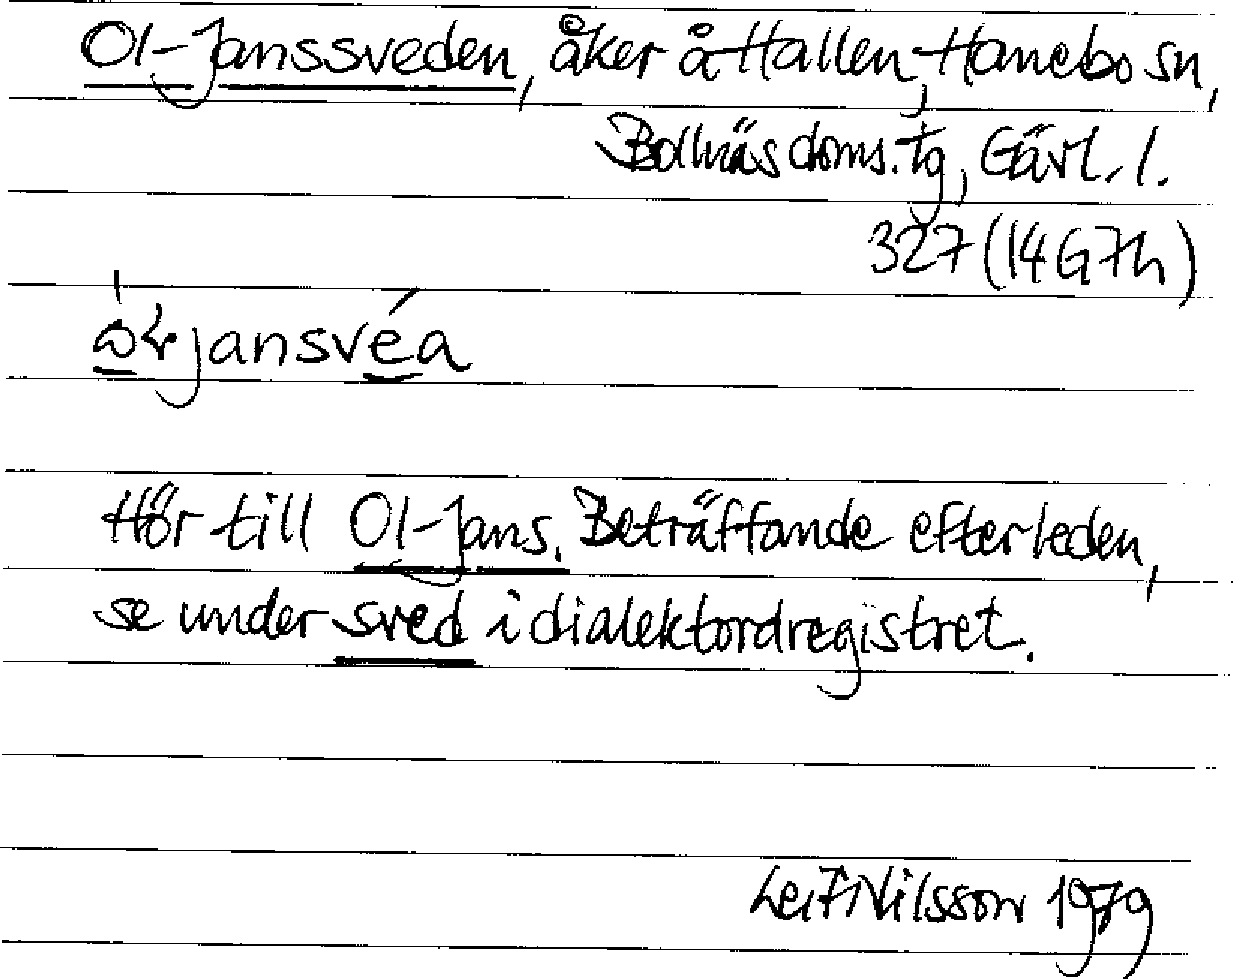 Ol-Janssveden, åker å Hallen, Hanebo sn,
Bollnäs doms. tg, Gävl. l.
327 (14G7h)
jansvéa
Hör till Ol-Jans. Beträffande efterleden,
se under sved i dialektordregistret.
Leif Nilsson 1979